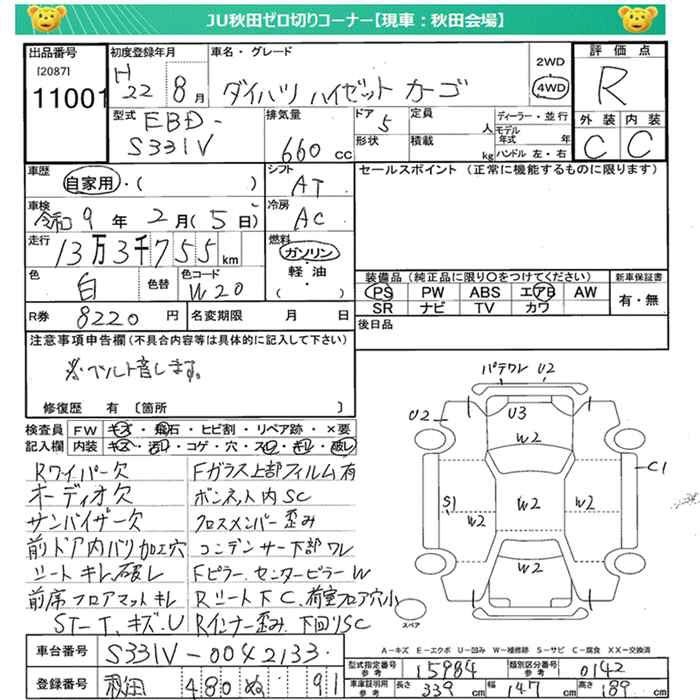 JU秋田ゼロ切りコーナー【現車：秋田会場】
出品番号
[2087]
11001
初度登録年月
H22 8月
車名・グレード
ダイハツ ハイゼット カーゴ
2WD
4WD
評価点
R
外装 内装
C C
型式
EBD-
S331V
排気量
660 cc
ドア 5
形状
定員 人
積載 kg
ディーラー・並行
モデル年式 年
ハンドル 左・右
車歴
自家用・( )
シフト
AT
セールスポイント (正常に機能するものに限ります)
車検
令和9年2月(5日)
冷房
AC
走行
13万3千755km
燃料
ガソリン・
軽油・
( )
色
白
色替
色コード
W20
装備品 (純正品に限り○をつけてください)
PS PW ABS エアB AW
SR ナビ TV カワ
新車保証書
有・無
R券 8220円
名変期限 月 日
後日品
注意事項申告欄 (不具合内容等は具体的に記入して下さい)
※ベルト音します。
修復歴 有 〔箇所 〕
検査員記入欄
FW キズ・飛石・ヒビ割・リペア跡・×要
内装 キズ・汚れ・コゲ・穴・スレ・キレ・破レ
Rワイパー欠 Fガラス上部フィルム有
オーディオ欠 ボンネット内SC
サンバイザー欠 クロスメンバー歪み
前ドア内バリ加工穴 コンデンサー下部ワレ
シートキレ、破レ Fピラー、センターピラーW
前席フロアマットキレ Rシート下C、荷室フロア穴小
ST-T、キズ、U Rインナー歪み 下回りSC
パテワレ U2
U2
U3
W2
C1
S1
W2
W2
W2
W2
スペア
A－キズ E－エクボ U－凹み W－補修跡 S－サビ C－腐食 XX－交換済
車台番号 S331V-0042133
登録番号 秋田 480 ぬ 91
型式指定番号 参考 15984
類別区分番号 参考 0142
車庫証明用 参考 長さ 339 cm 幅 147 cm 高さ 189 cm